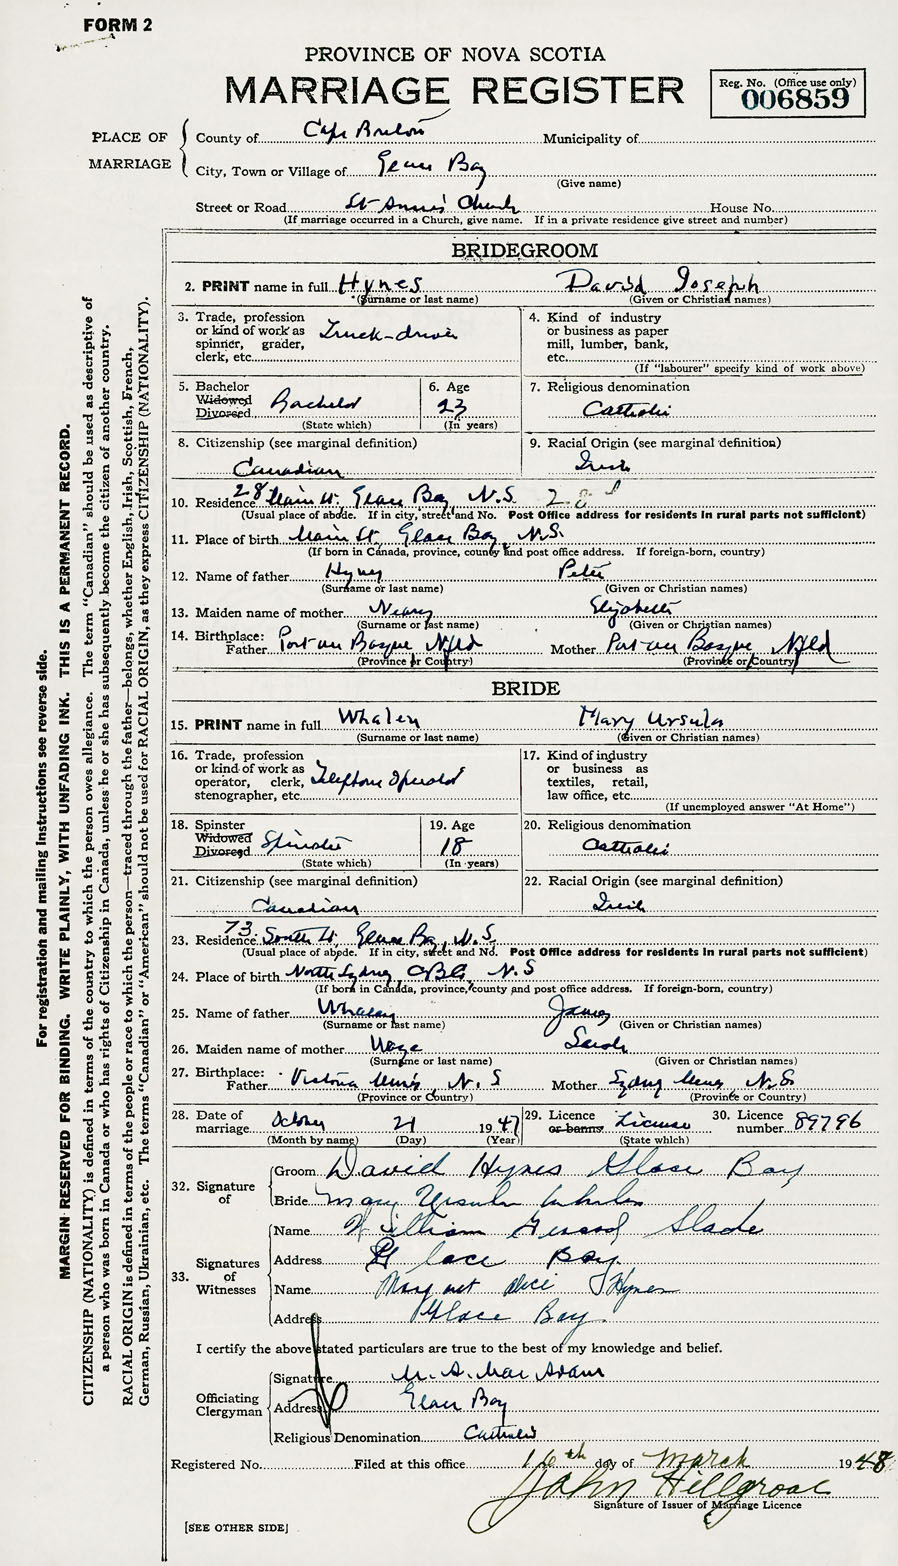 FORM 2
PROVINCE OF NOVA SCOTIA
MARRIAGE REGISTER
Reg. No. (Office use only)
006859
PLACE OF MARRIAGE
County of Cape Breton Municipality of
City, Town or Village of Glace Bay
(Give name)
Street or Road St. Anne's Church House No.
(If marriage occurred in a Church, give name. If in a private residence give street and number)
BRIDEGROOM
2. PRINT name in full Hynes David Joseph
(Surname or last name) (Given or Christian names)
3. Trade, profession or kind of work as spinner, grader, clerk, etc. Truck-driver
4. Kind of industry or business as paper mill, lumber, bank, etc.
(If "labourer" specify kind of work above)
5. Bachelor Widowed Divorced Bachelor
(State which)
6. Age 23
(In years)
7. Religious denomination
Catholic
8. Citizenship (see marginal definition)
Canadian
9. Racial Origin (see marginal definition)
Irish
10. Residence 28 Main St. Glace Bay, N.S.
(Usual place of abode. If in city, street and No. Post Office address for residents in rural parts not sufficient)
11. Place of birth Main St. Glace Bay, N.S.
(If born in Canada, province, county and post office address. If foreign-born, country)
12. Name of father Hynes Peter
(Surname or last name) (Given or Christian names)
13. Maiden name of mother Neary Elizabeth
(Surname or last name) (Given or Christian names)
14. Birthplace: Father Port au Basque Nfld Mother Port au Basque Nfld
(Province or Country) (Province or Country)
BRIDE
15. PRINT name in full Whalen Mary Ursula
(Surname or last name) (Given or Christian names)
16. Trade, profession or kind of work as operator, clerk, stenographer, etc. Telephone Operator
17. Kind of industry or business as textiles, retail, law office, etc.
(If unemployed answer "At Home")
18. Spinster Widowed Divorced Spinster
(State which)
19. Age 18
(In years)
20. Religious denomination
Catholic
21. Citizenship (see marginal definition)
Canadian
22. Racial Origin (see marginal definition)
Irish
23. Residence 73 South St. Glace Bay, N.S.
(Usual place of abode. If in city, street and No. Post Office address for residents in rural parts not sufficient)
24. Place of birth North Sydney, N.S
(If born in Canada, province, county and post office address. If foreign-born, country)
25. Name of father Whalen James
(Surname or last name) (Given or Christian names)
26. Maiden name of mother Sarah
(Surname or last name) (Given or Christian names)
27. Birthplace: Father Victoria Mines, N.S Mother Sydney Mines, N.S.
(Province or Country) (Province or Country)
28. Date of marriage October 21 1947
(Month by name) (Day) (Year)
29. Licence or banns License
(State which)
30. Licence number 89796
32. Signature of
Groom David Hynes Glace Bay
Bride Mary Ursula Whalen
33. Signatures of Witnesses
Name William Gerard Slade
Address Glace Bay.
Name Margaret Alice Hynes
Address Glace Bay.
I certify the above stated particulars are true to the best of my knowledge and belief.
Officiating Clergyman
Signature M. A. MacAdam
Address Glace Bay
Religious Denomination Catholic
Registered No. Filed at this office 16th day of March 1948
John Hillgrove
Signature of Issuer of Marriage Licence
[SEE OTHER SIDE]
For registration and mailing instructions see reverse side.
MARGIN RESERVED FOR BINDING. WRITE PLAINLY, WITH UNFADING INK. THIS IS A PERMANENT RECORD.
CITIZENSHIP (NATIONALITY) is defined in terms of the country to which the person owes allegiance. The term "Canadian" should be used as descriptive of
a person who was born in Canada or who has rights of Citizenship in Canada, unless he or she has subsequently become the citizen of another country.
RACIAL ORIGIN is defined in terms of the people or race to which the person—traced through the father—belongs, whether English, Irish, Scottish, French,
German, Russian, Ukrainian, etc. The terms "Canadian" or "American" should not be used for RACIAL ORIGIN, as they express CITIZENSHIP (NATIONALITY).